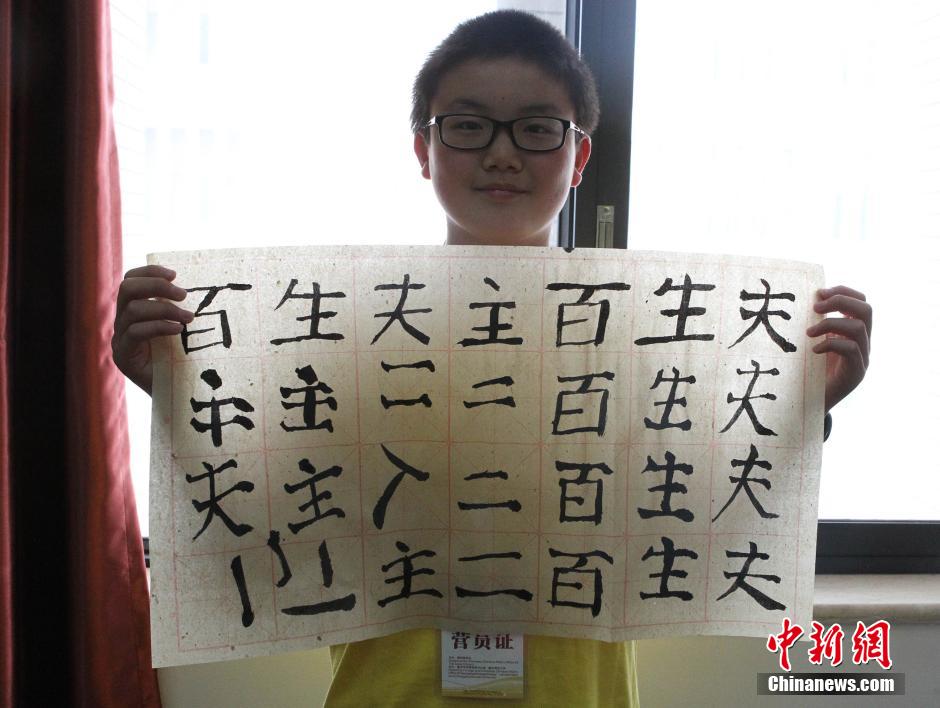 夫夫夫夫
生生生生
百百百百
主二二二
夫二入主
生主主
百夫
营员证
中新网
Chinanews.com